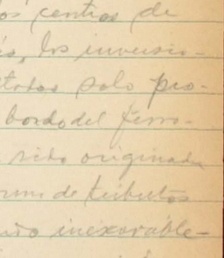 os centros de
los inversio-
solo pro-
bordo del ferro-
sido originada
de tributos
inexorable-